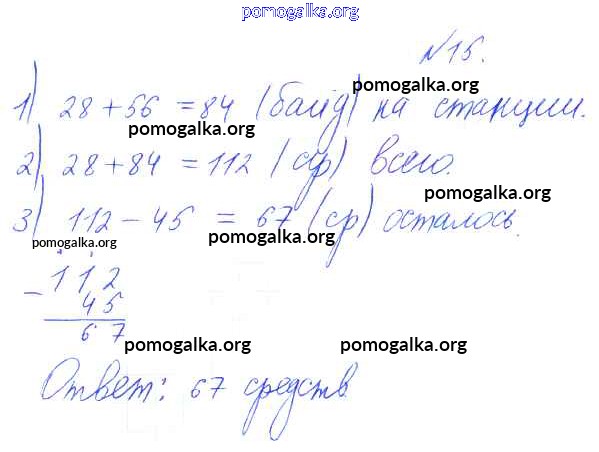 pomogalka.org
№15.
pomogalka.org
1) 28 + 56 = 84 (байд) на станции.
pomogalka.org
2) 28 + 84 = 112 (ср) всего.
pomogalka.org
3) 112 - 45 = 67 (ср) осталось.
pomogalka.org pomogalka.org
- 112
45
67
pomogalka.org pomogalka.org
Ответ: 67 средств.